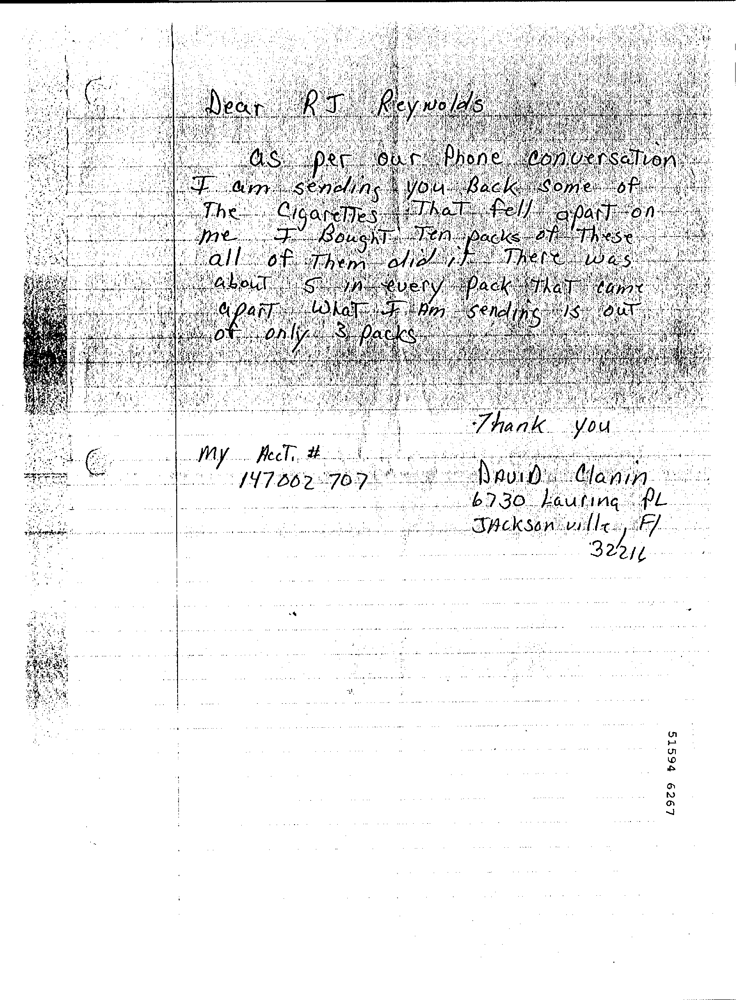 Dear RJ Reynolds
as per our Phone conversation
I am sending you Back some of
The CigareTTes ThaT fell aparT on
me I BoughT Ten packs of These
all of Them did it There was
abouT 5 in every pack ThaT came
aparT WhaT I Am sending is ouT
of only 3 packs
Thank you
My AccT. #
147002 707
DAVID Clanin
6730 Lauring PL
JAcksonville, Fl
32216
51594 6267